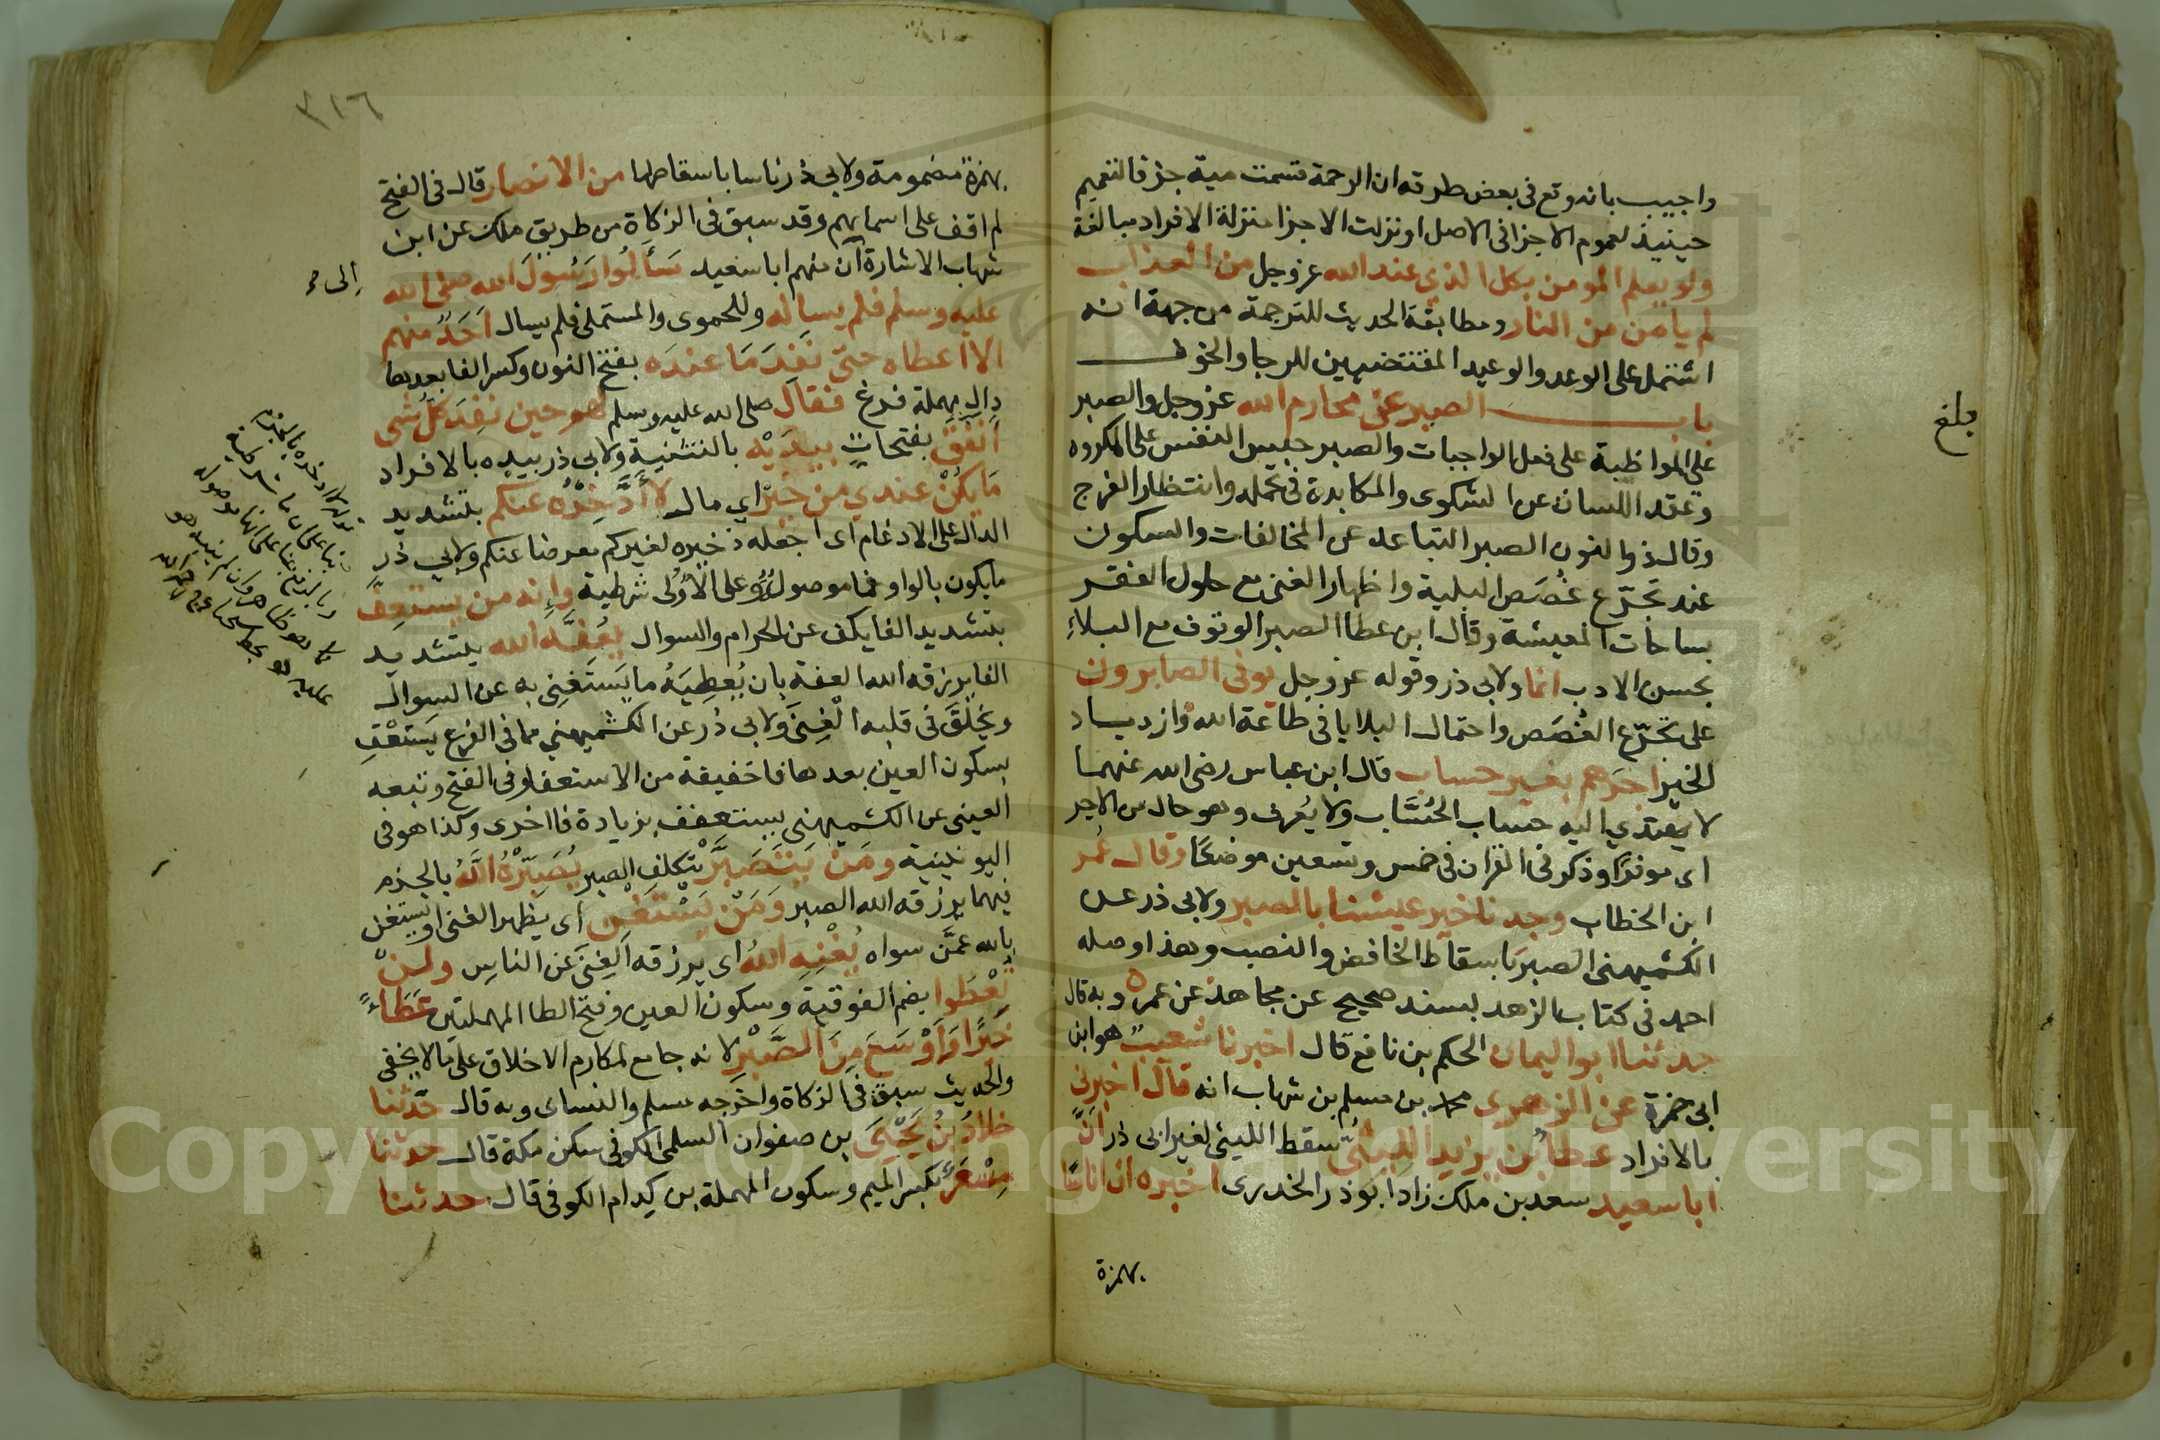 واجيب بانه وقع في بعض طرقه ان الرحمة قسمت مية جزء فالتعميم
حينيذ لعموم الاجزا في الاصل او نزلت الاجزا منزلة الافراد مبالغة
ولو يعلم المومن بكل الذي عند الله عز وجل من العذاب
لم يامن من النار ومطابقة الحديث للترجمة من جهة انه
اشتمل على الوعد والوعيد المقتضيين للرجا والخوف
باب الصبر عن محارم الله عز وجل والصبر
على المواظبة على فعل الواجبات والصبر حبس النفس على المكروه
وعقد اللسان عن الشكوى والمكابدة في تحمله وانتظار الفرج
وقال ذو النون الصبر التباعد عن المخالفات والسكون
عند تجرّع غُصَص البلية واظهار الغنى مع حلول الفقر
بساحات المعيشة وقال ابن عطا الصبر الوقوف مع البلاءِ
بحسن الادب انما ولابي ذر وقوله عز وجل يوفى الصابرون
على تجرّع الغُصَص واحتمال البلايا في طاعة الله وازدياد
الخير اجرهم بغير حساب قال ابن عباس رضي الله عنهما
لا يهتدي اليه حساب الحُسَّاب ولا يُعرف وهو حال من الاجر
اي موفرًا وذكر في القران في خمس وتسعين موضعًا وقال عُمر
ابن الخطاب وجدنا خير عيشنا بالصبر ولابي ذر عن
الكشميهني الصبر باسقاط الخافض والنصب وهذا وصله
احمد في كتاب الزهد بسند صحيح عن مجاهد عن عمر ه وبه قال
حدثنا ابو اليمان الحكم بن نافع قال اخبرنا شعيب هو ابن
ابي حمزة عن الزهري محمد بن مسلم بن شهاب انه قال اخبرني
بالافراد عطا بن يزيد الليثي سقط الليثي لغير ابي ذر انَّ
ابا سعيد سعد بن ملك زاد ابو ذر الخدري اخبره ان اناسًا
بهمزة
بلغ
٣١٦
بهمزة مضمومة ولابي ذر ناسا باسقاطها من الانصار قال في الفتح
لم اقف على اسمايهم وقد سبق في الزكاة من طريق ملك عن ابن
شهاب الاشارة ان منهم ابا سعيد سَأَلُوا رَسُولَ الله صلى الله
عليه وسلم فلم يساله وللحموي والمستملي فلم يسال اَحَدٌ منهم
الا اعطاه حتى نَفِدَ مَا عندَه بفتح النون وكسر الفا بعدها
دال مهملة فرغ فقال صلى الله عليه وسلم لهم حين نَفِدَ كُلُّ شي
اَنْفَقَ بفتحاتٍ بِيَدَيْه بالتثنية ولابي ذر بيده بالافراد
مَا يَكُنْ عندي من خيرٍ اي مال لا اَدَّخِرْهُ عنكم بتشديد
الدال على الادغام اي اجعله ذخيره لغيركم معرضا عنكم ولابي ذر
ما يكون بالواو فما موصول وعلى الاولى شرطية وانه من يستعفَّ
بتشديد الفا يكف عن الحرام والسوال يُعِفَّه الله بتشديد
الفا يرزقه الله العفة بان يُعطِيَهُ ما يَستَغنِي به عن السوال
ويخلُقَ في قلبه الْغِنَى ولابي ذر عن الكشميهني مما في الفرع يَستعْفِ
بسكون العين بعدها فا خفيفة من الاستعفا وفي الفتح وتبعه
العيني عن الكشميهني يستعفف بزيادة فا اخرى وكذا هو في
اليونينية ومَنْ يَتَصَبَّرْ يتكلف الصبر يُصَبِّرْهُ اللَّهُ بالجزم
فيهما يرزقه الله الصبر وَمَنْ يَسْتَغْنِ اي يظهر الغنى او يستغن
بالله عمَّن سواه يُغْنِهِ اللهُ اي يرزقه الغِنَى عن الناس ولَنْ
تُعْطَوا بضم الفوقية وسكون العين وفتح الطا المهملتين عَطَاءً
خَيرًا وَاَوْسَعَ مِنَ الصَّبْر لانه جامع لمكارم الاخلاق على ما لا يخفى
والحديث سبق في الزكاة واخرجه مسلم والنساي وبه قال حدّثنا
خلادُ بنُ يَحْيَى بن صفوان السلمي الكوفي سكن مكة قال حدثنا
مِسْعَرٌ بكسر الميم وسكون المهملة بن كِدام الكوفي قال حدثنا